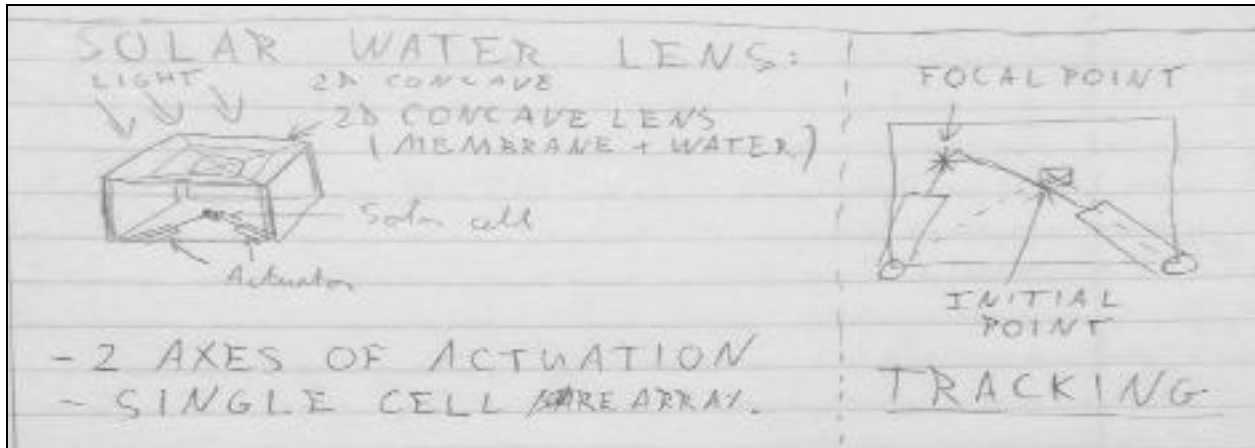 SOLAR WATER LENS:
LIGHT
2D CONCAVE
2D CONCAVE LENS
(MEMBRANE + WATER)
Solar cell
Actuator
- 2 AXES OF ACTUATION
- SINGLE CELL / ARRAY.
FOCAL POINT
INITIAL
POINT
TRACKING